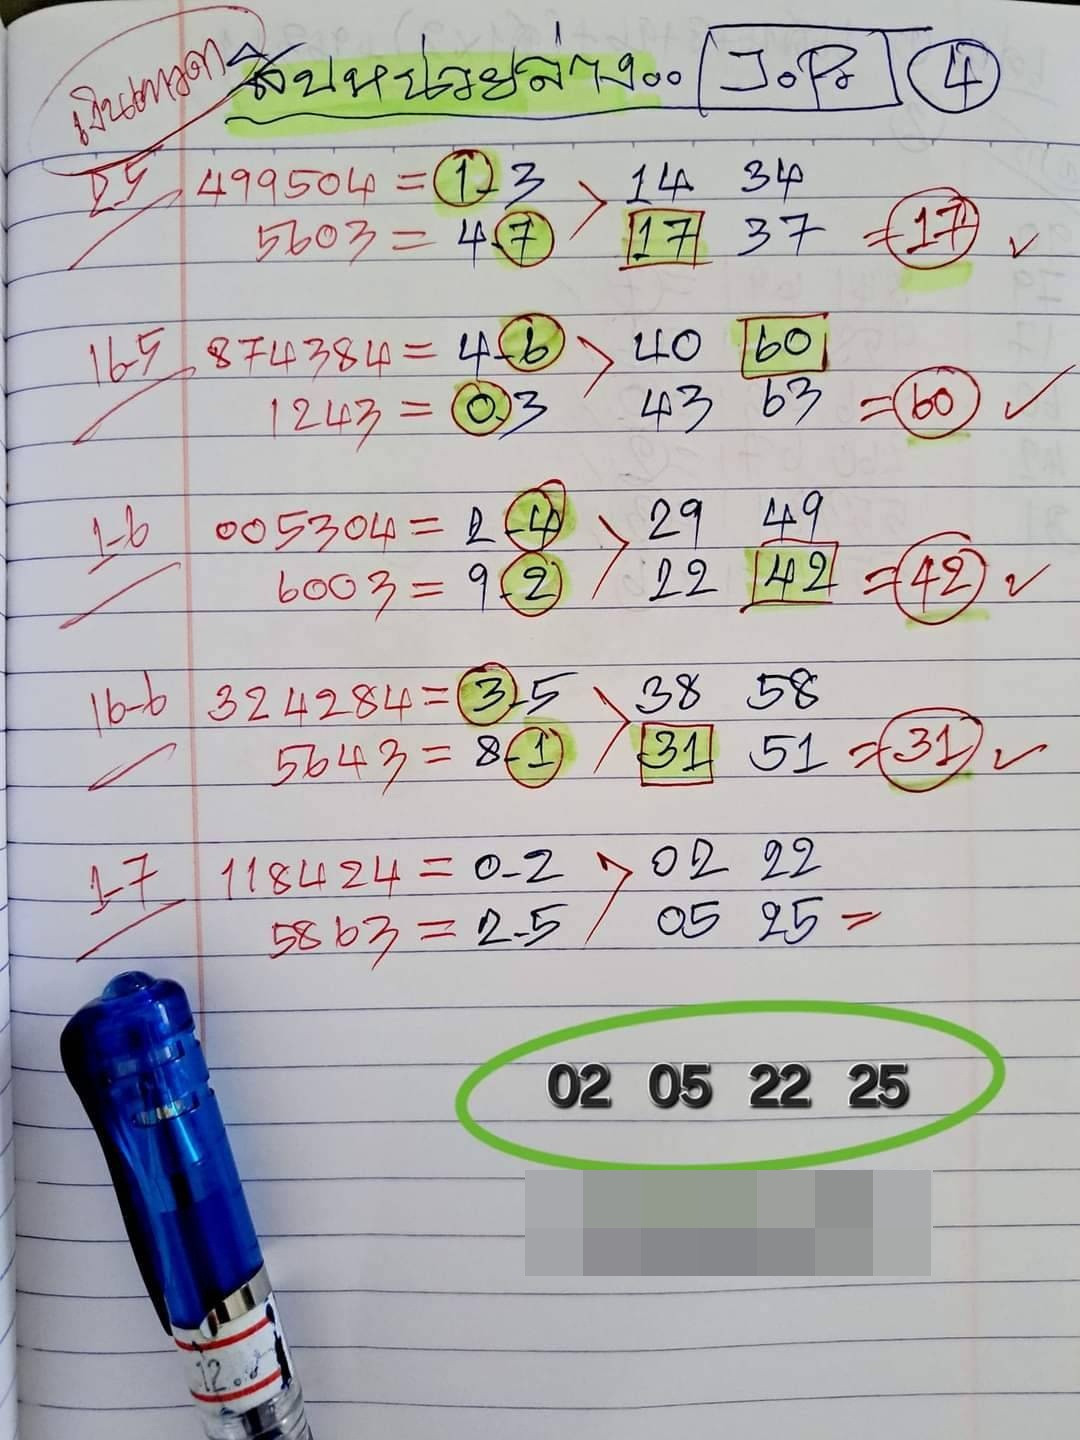 เงินเทวดา สิบหน่วยล่าง.. J.P. 4
2-5 499504 = 1-3 > 14 34
5603 = 4-7 17 37 = 17 ✓
16-5 874384 = 4-6 > 40 60
1243 = 0-3 43 63 = 60 ✓
1-6 005304 = 2-4 > 29 49
6003 = 9-2 22 42 = 42 ✓
16-6 324284 = 3-5 > 38 58
5643 = 8-1 31 51 = 31 ✓
1-7 118424 = 0-2 > 02 22
5863 = 2-5 05 25 =
02 05 22 25
12.